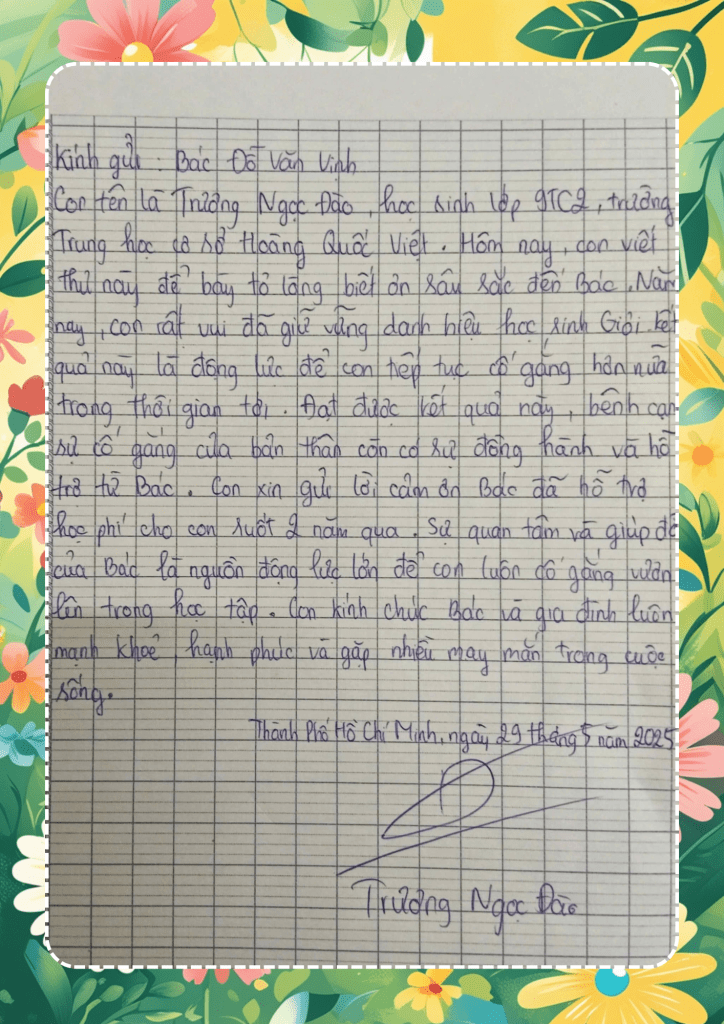 Kính gửi : Bác Đỗ Văn Vinh
Con tên là Trương Ngọc Đào, học sinh lớp 9TC2, trường
Trung học cơ sở Hoàng Quốc Việt. Hôm nay, con viết
thư này để bày tỏ lòng biết ơn sâu sắc đến Bác. Năm
nay, con rất vui đã giữ vững danh hiệu học sinh Giỏi kết
quả này là động lực để con tiếp tục cố gắng hơn nữa
trong thời gian tới. Đạt được kết quả này, bênh cạn
sự cố gắng của bản thân còn có sự đồng hành và hỗ
trợ từ Bác. Con xin gửi lời cảm ơn Bác đã hỗ trợ
học phí cho con suốt 2 năm qua. Sự quan tâm và giúp đỡ
của Bác là nguồn động lực lớn để con luôn cố gắng vươn
lên trong học tập. Con kính chúc Bác và gia đình luôn
mạnh khoẻ, hạnh phúc và gặp nhiều may mắn trong cuộc
sống.
Thành Phố Hồ Chí Minh, ngày 29 tháng 5 năm 2025
Trương Ngọc Đào